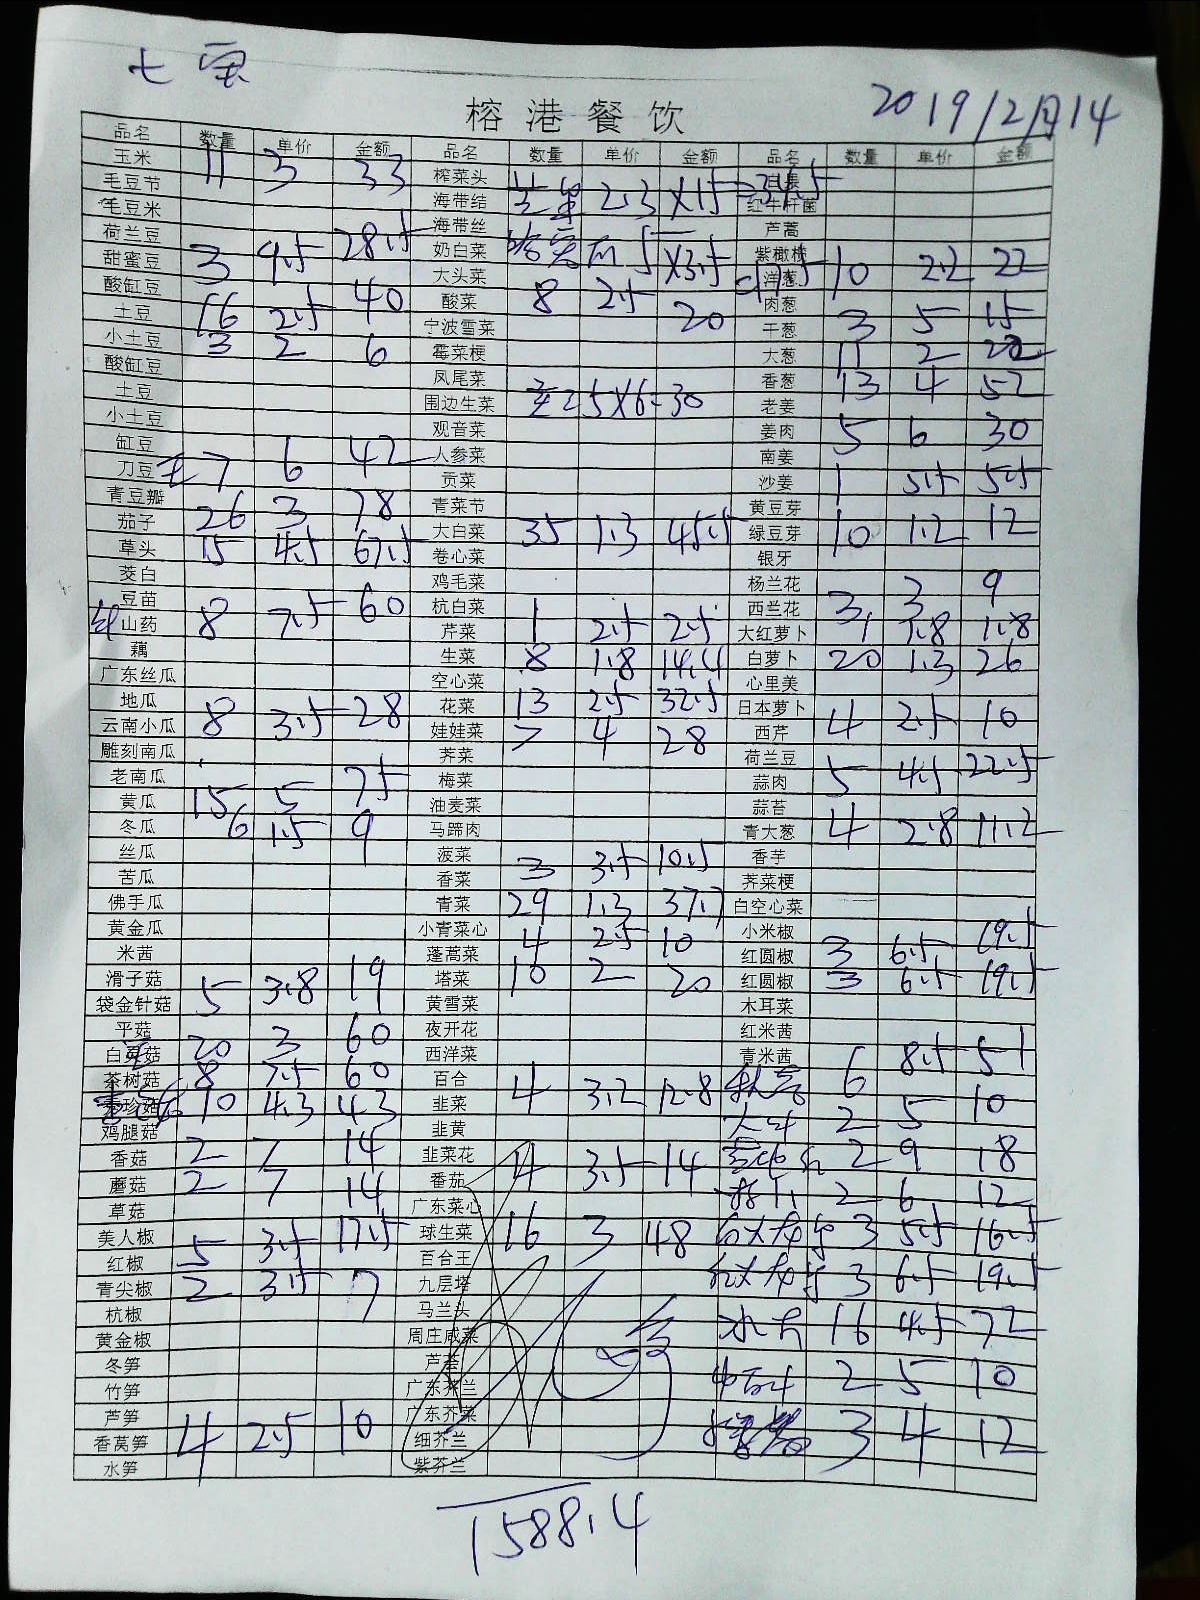 七宝
榕港餐饮
2019/2月14
品名 数量 单价 金额 品名 数量 单价 金额 品名 数量 单价 金额
玉米 11 3 33 榨菜头
毛豆节 海带结 2.3 红牛杆菌
毛豆米 海带丝 芦蒿
荷兰豆 奶白菜 紫橄榄
甜蜜豆 3 9.5 28.5 大头菜 洋葱 10 2.2 22
酸缸豆 酸菜 8 2.5 20 肉葱
土豆 16 2.5 40 宁波雪菜 干葱 3 5 15
小土豆 3 2 6 霉菜梗 大葱 11 2 22
酸缸豆 凤尾菜 香葱 13 4 52
土豆 围边生菜 5X6=30 老姜
小土豆 观音菜 姜肉 5 6 30
缸豆 人参菜 南姜
刀豆 7 6 42 贡菜 沙姜 1 5.5 5.5
青豆瓣 青菜节 黄豆芽
茄子 26 3 78 大白菜 35 1.3 45.5 绿豆芽 10 1.2 12
草头 15 4.5 67.5 卷心菜 银牙
茭白 鸡毛菜 杨兰花
豆苗 杭白菜 西兰花 3 3 9
山药 8 7.5 60 芹菜 1 2.5 2.5 大红萝卜 1 1.8 1.8
藕 生菜 8 1.8 14.4 白萝卜 20 1.3 26
广东丝瓜 空心菜 心里美
地瓜 花菜 13 2.5 32.5 日本萝卜
云南小瓜 8 3.5 28 娃娃菜 7 4 28 西芹 4 2.5 10
雕刻南瓜 荠菜 荷兰豆
老南瓜 梅菜 蒜肉 5 4.5 22.5
黄瓜 15 5 75 油麦菜 蒜苔
冬瓜 6 1.5 9 马蹄肉 青大葱 4 2.8 11.2
丝瓜 菠菜 香芋
苦瓜 香菜 3 3.5 10.5 荠菜梗
佛手瓜 青菜 29 1.3 37.7 白空心菜
黄金瓜 小青菜心 4 2.5 10 小米椒
米茜 蓬蒿菜 红圆椒 3 6.5 19.5
滑子菇 塔菜 10 2 20 红圆椒 3 6.5 19.5
袋金针菇 5 3.8 19 黄雪菜 木耳菜
平菇 夜开花 红米茜
白灵菇 20 3 60 西洋菜 青米茜
茶树菇 8 7.5 60 百合 秋葵 6 8.5 51
秀珍菇 10 4.3 43 韭菜 4 3.2 12.8 2 5 10
鸡腿菇 韭黄
香菇 2 7 14 韭菜花 2 9 18
蘑菇 2 7 14 番茄 4 3.5 14 2 6 12
草菇 广东菜心
美人椒 球生菜 16 3 48 3 5.5 16.5
红椒 5 3.5 17.5 百合王
青尖椒 2 3.5 7 九层塔 3 6.5 19.5
杭椒 马兰头
黄金椒 周庄咸菜 16 4.5 72
冬笋 芦荟
竹笋 广东芥兰 2 5 10
芦笋 广东芥菜
香莴笋 4 2.5 10 细芥兰 3 4 12
水笋 紫芥兰
1588.4